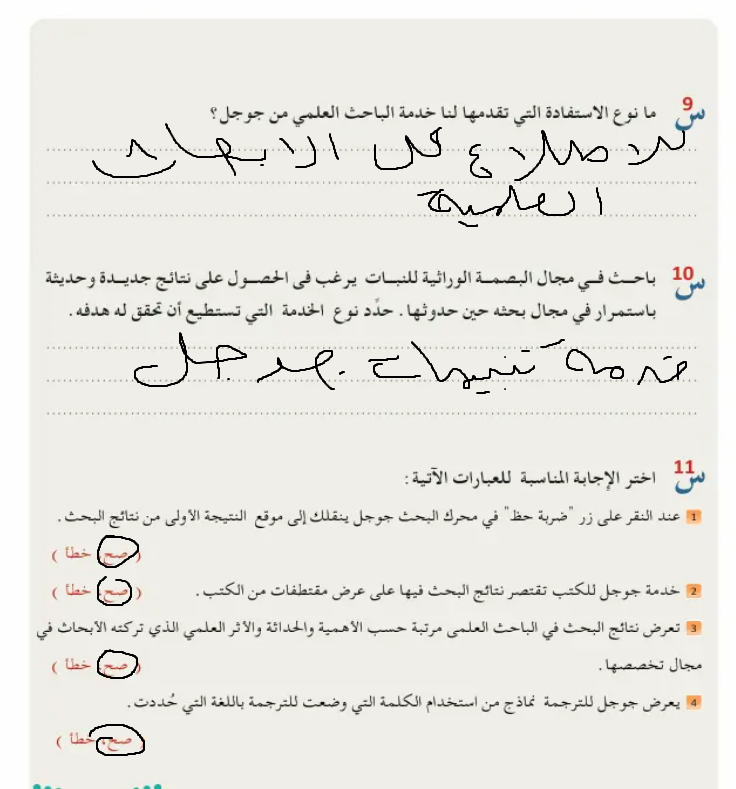 س9 ما نوع الاستفادة التي تقدمها لنا خدمة الباحث العلمي من جوجل؟
للاطلاع على الابحاث
العلمية
س10 باحث في مجال البصمة الوراثية للنبات يرغب فى الحصول على نتائج جديدة وحديثة
باستمرار في مجال بحثه حين حدوثها. حدِّد نوع الخدمة التي تستطيع أن تحقق له هدفه.
خدمة تنبيهات جوجل
س11 اختر الإجابة المناسبة للعبارات الآتية:
1 عند النقر على زر "ضربة حظ" في محرك البحث جوجل ينقلك إلى موقع النتيجة الأولى من نتائج البحث.
( صح، خطأ )
2 خدمة جوجل للكتب تقتصر نتائج البحث فيها على عرض مقتطفات من الكتب. ( صح، خطأ )
3 تعرض نتائج البحث في الباحث العلمى مرتبة حسب الأهمية والحداثة والأثر العلمي الذي تركته الأبحاث في
مجال تخصصها. ( صح، خطأ )
4 يعرض جوجل للترجمة نماذج من استخدام الكلمة التي وضعت للترجمة باللغة التي حُددت.
( صح، خطأ )